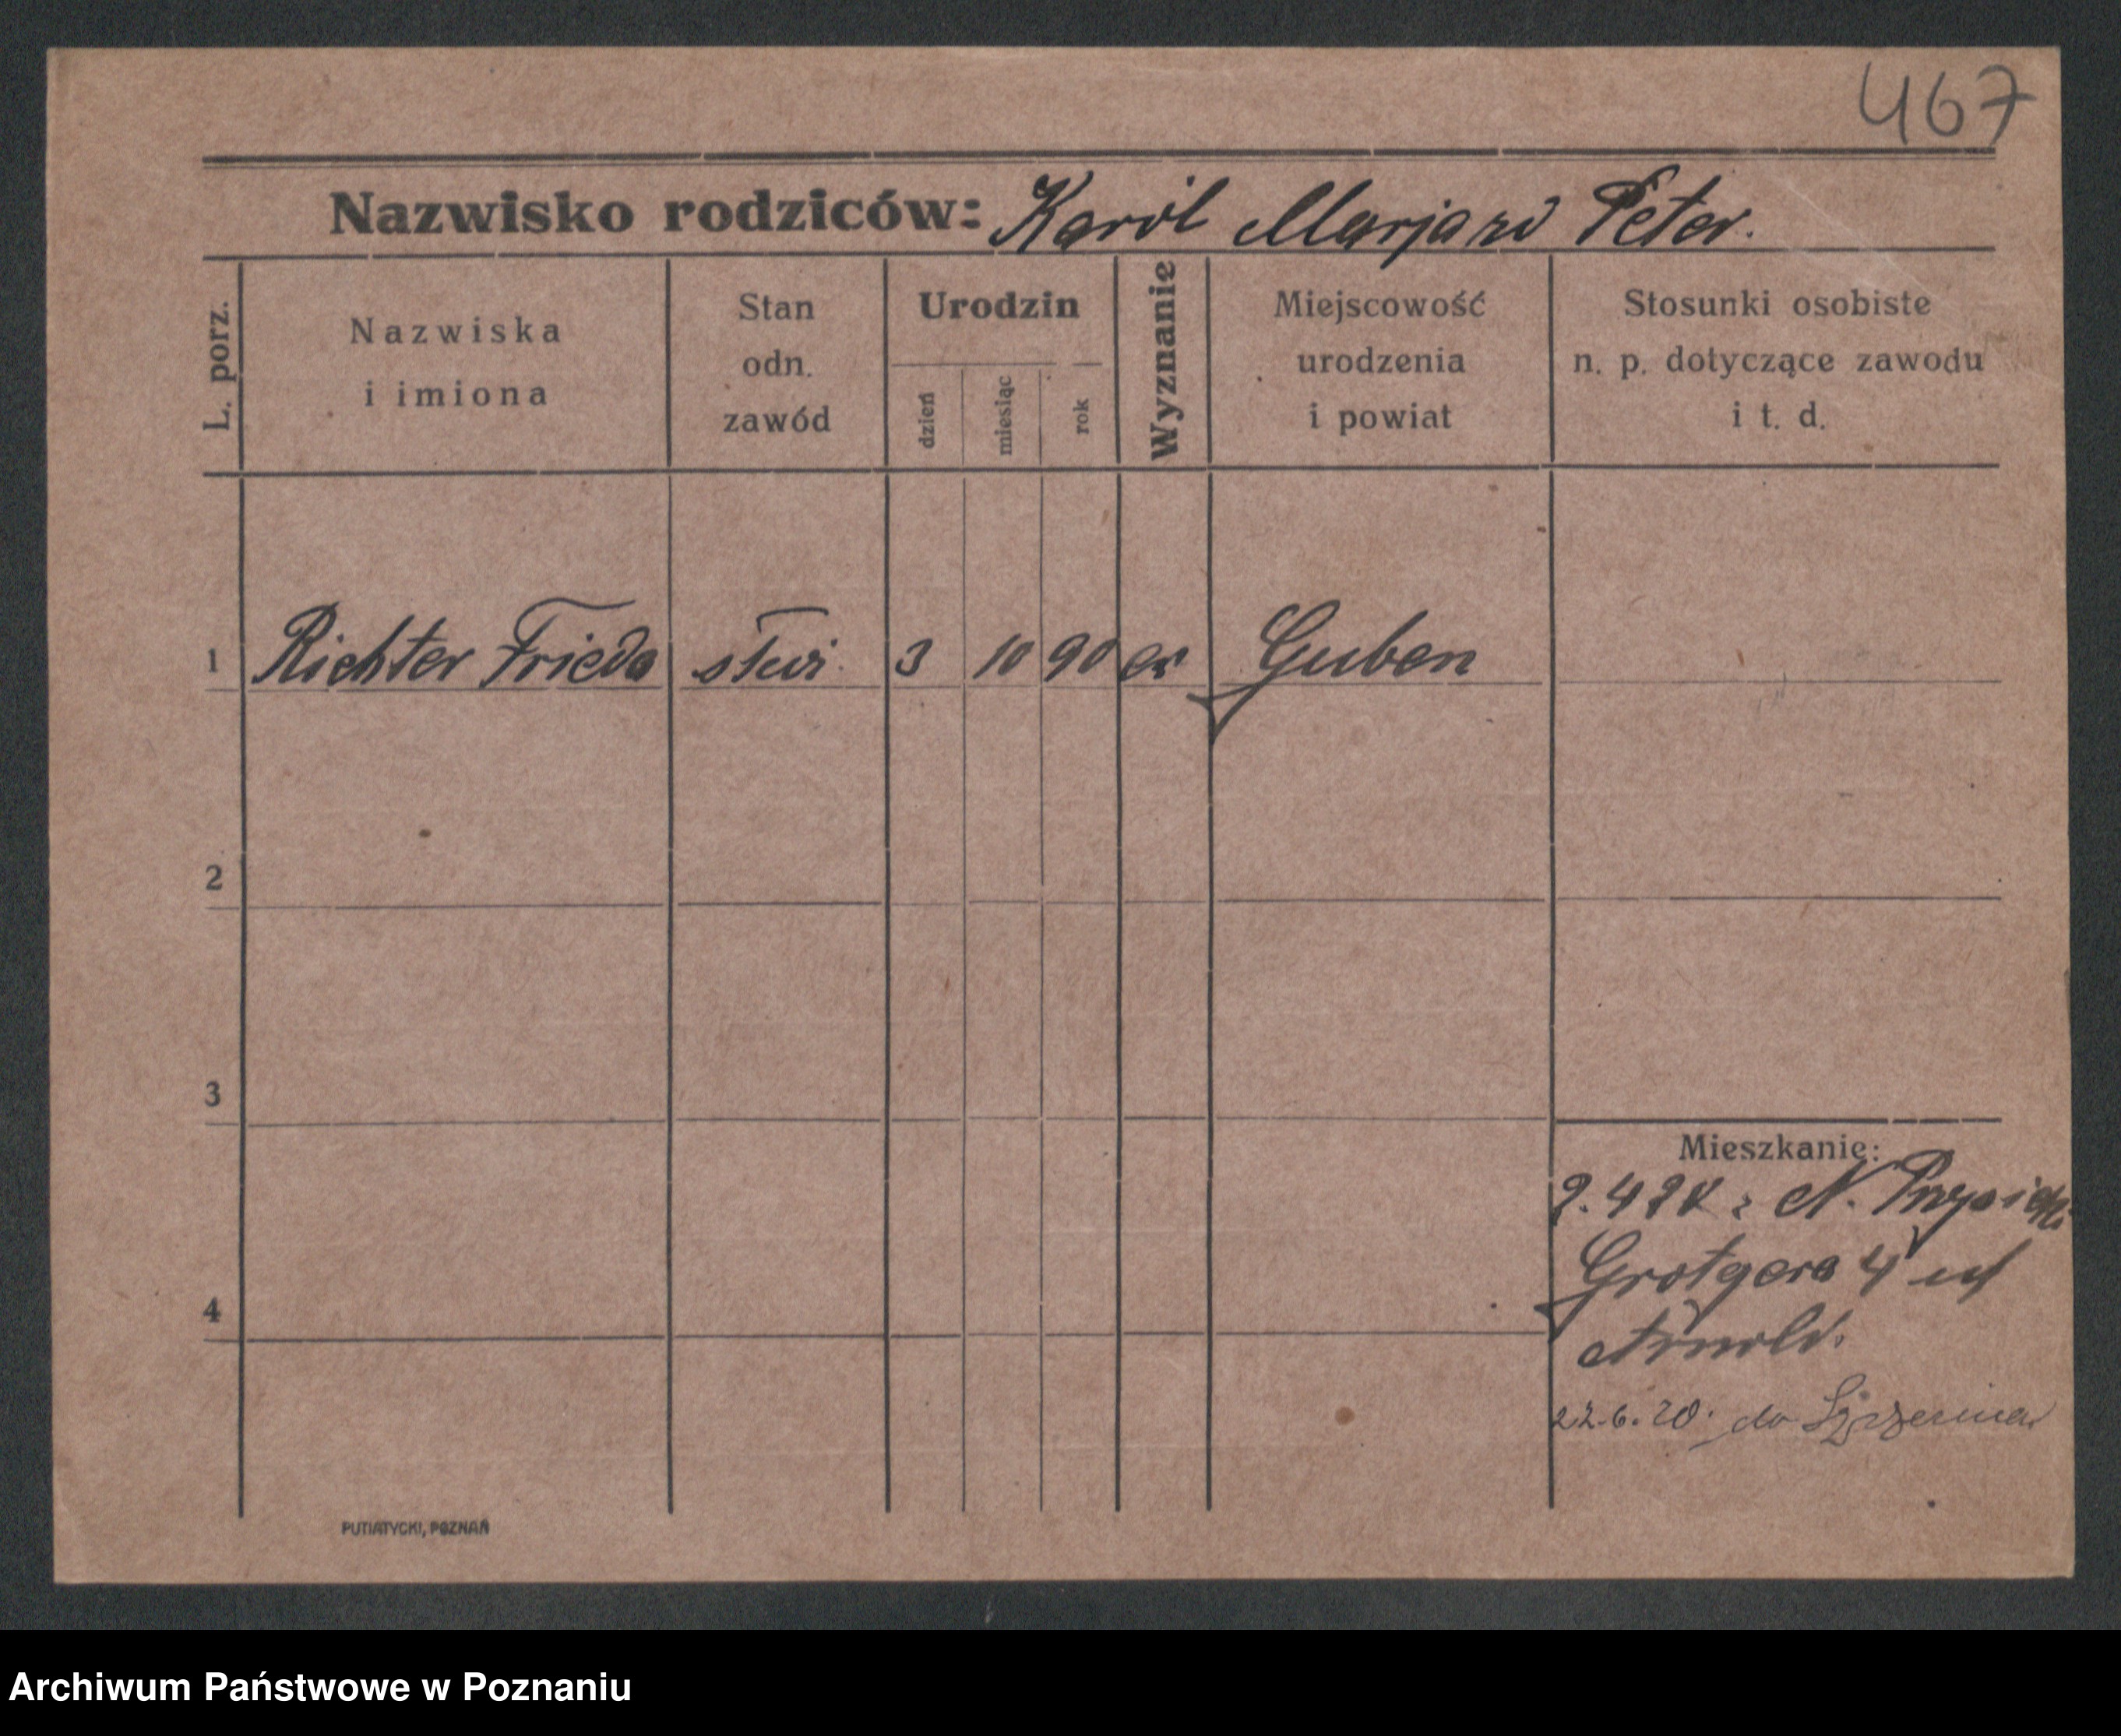 467
Nazwisko rodziców: Karól Marja zd Peter.
L. porz.
Nazwiska
i imiona
Stan
odn.
zawód
Urodzin
dzień
miesiąc
rok
Wyznanie
Miejscowość
urodzenia
i powiat
Stosunki osobiste
n. p. dotyczące zawodu
i t. d.
1 Richter Frieda 3 10 90 ew Guben
2
3
4
Mieszkanie:
z N.
Grotgera 4
Arnold.
22.6.20. do
PUTIATYCKI, POZNAŃ
Archiwum Państwowe w Poznaniu